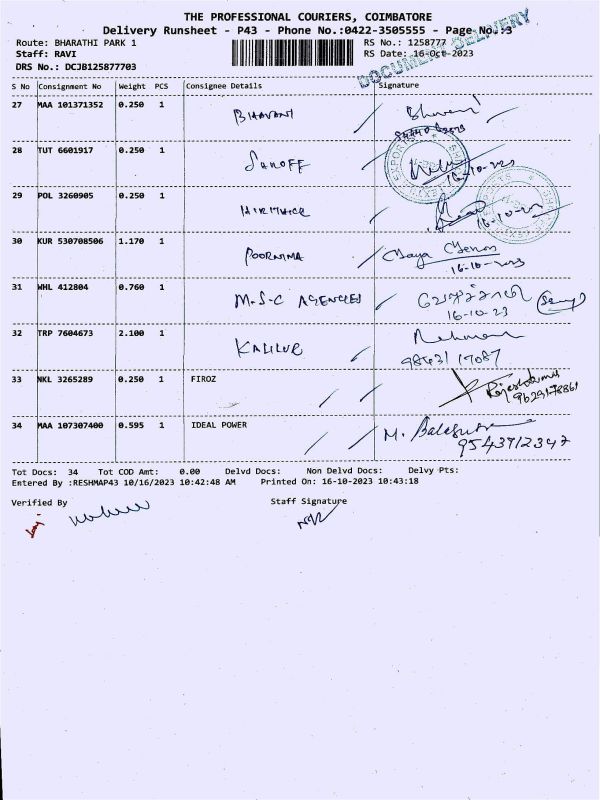 THE PROFESSIONAL COURIERS, COIMBATORE
Delivery Runsheet - P43 - Phone No.:0422-3505555 - Page No.:3
DOCUMENT DELIVERY
Route: BHARATHI PARK 1
RS No.: 1258777
Staff: RAVI
RS Date: 16-Oct-2023
DRS No.: DCJB125877703
S No Consignment No Weight PCS Consignee Details Signature
27 MAA 101371352 0.250 1 BHAVANI Bhavani
28 TUT 6601917 0.250 1
16-10-2023
29 POL 3260905 0.250 1
30 KUR 530708506 1.170 1 POORNIMA Jaya Menon
16-10-2023
31 WHL 412804 0.760 1 M.S.C AGENCIES
16-10-23
32 TRP 7604673 2.100 1 Rehman
33 NKL 3265289 0.250 1 FIROZ
9629178861
34 MAA 107307400 0.595 1 IDEAL POWER M.
9543912347
Tot Docs: 34 Tot COD Amt: 0.00 Delvd Docs: Non Delvd Docs: Delvy Pts:
Entered By :RESHMAP43 10/16/2023 10:42:48 AM Printed On: 16-10-2023 10:43:18
Verified By Staff Signature